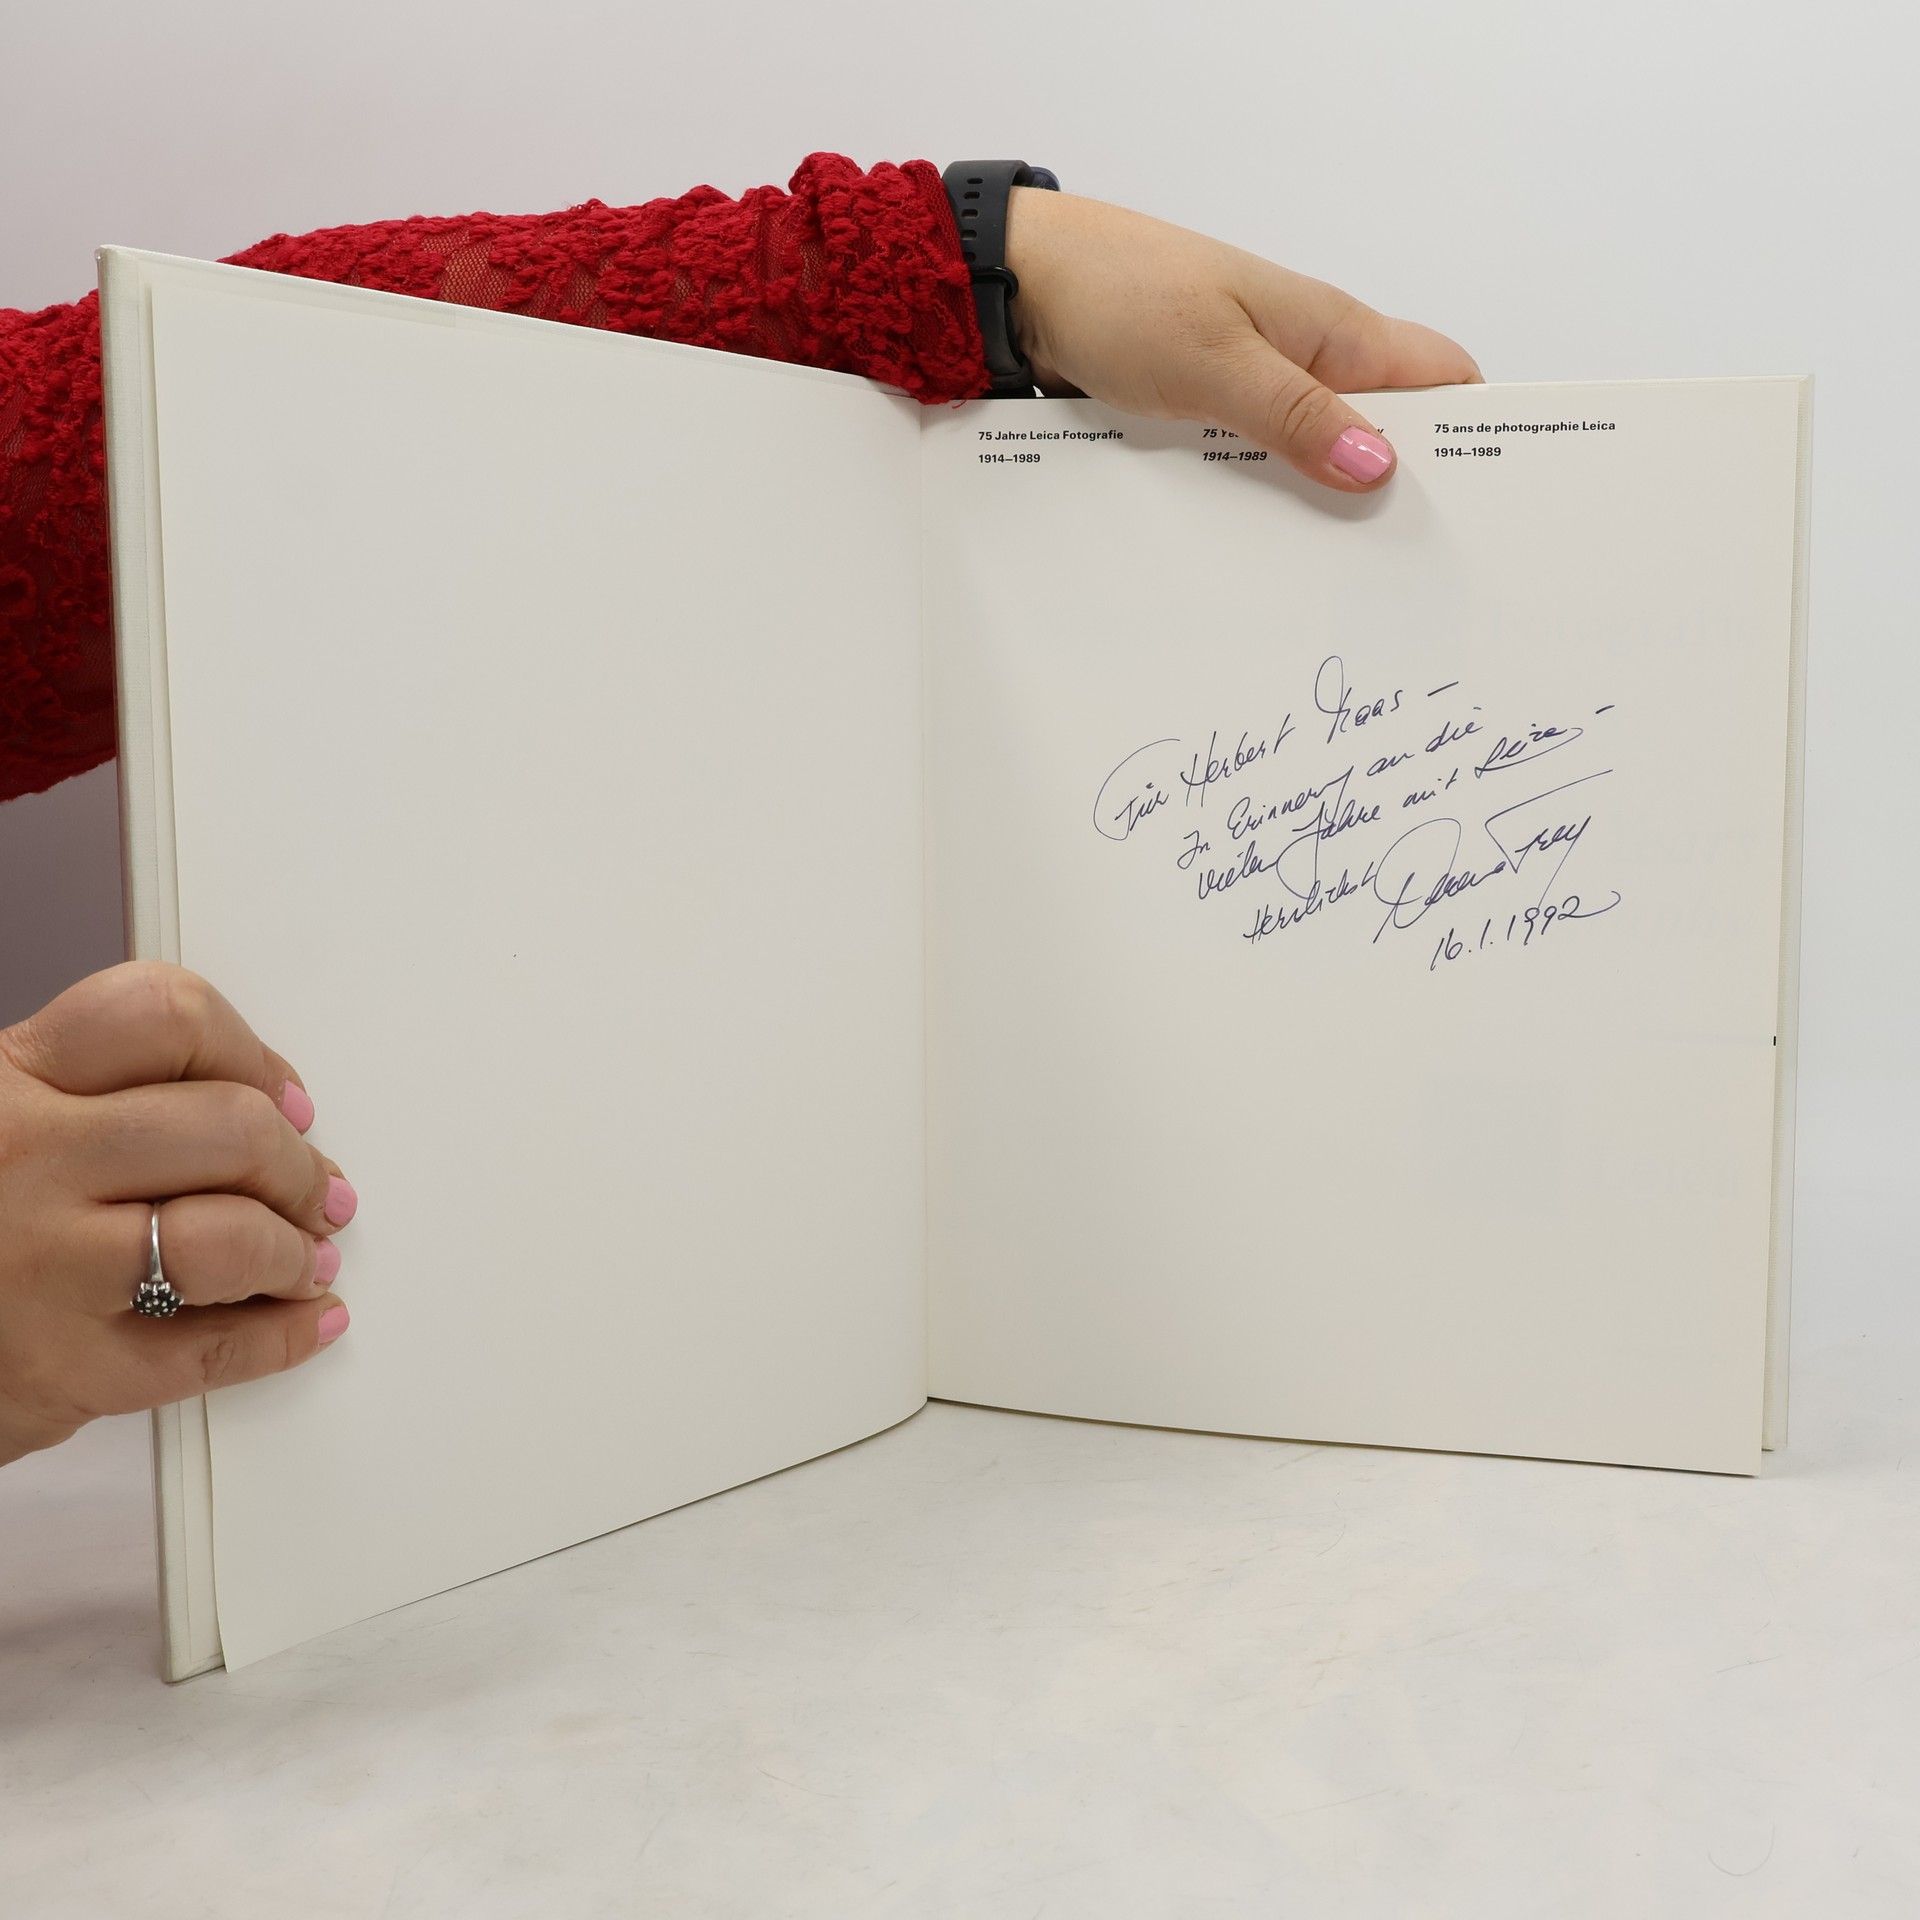 75 Jahre Leica Fotografie
1914–1989
75
1914–1989
75 ans de photographie Leica
1914–1989
Für Herbert Maas –
In Erinnerung an die
vielen Jahre mit Leica –
Herzlichst
16.1.1992